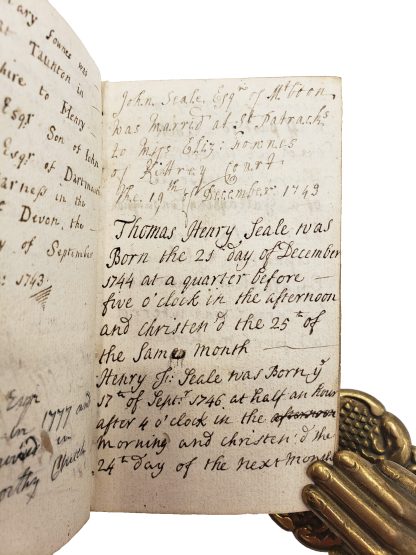 ary Townes was
at Taunton in
hire to Henry
Esqr. Son of John
Esqr. of Dartmouth
arness in the
f Devon, the
y of September
: 1743
Esqr
in 1777 and
in
orthy Church
John Seale Esqr. of Mt. Boon
was married at St. Patrachs
to Miss Eliz: Townes
of Kittrey Court
the 19th of December 1743
Thomas Henry Seale was
Born the 21st day of December
1744 at a quarter before
five o'clock in the afternoon
and christen'd the 25th of
the Same Month
Henry Seale was Born ye
17th of Septr. 1746 at half an hour
after 4 o'clock in the afternoon
morning and christen'd the
24th day of the next Month